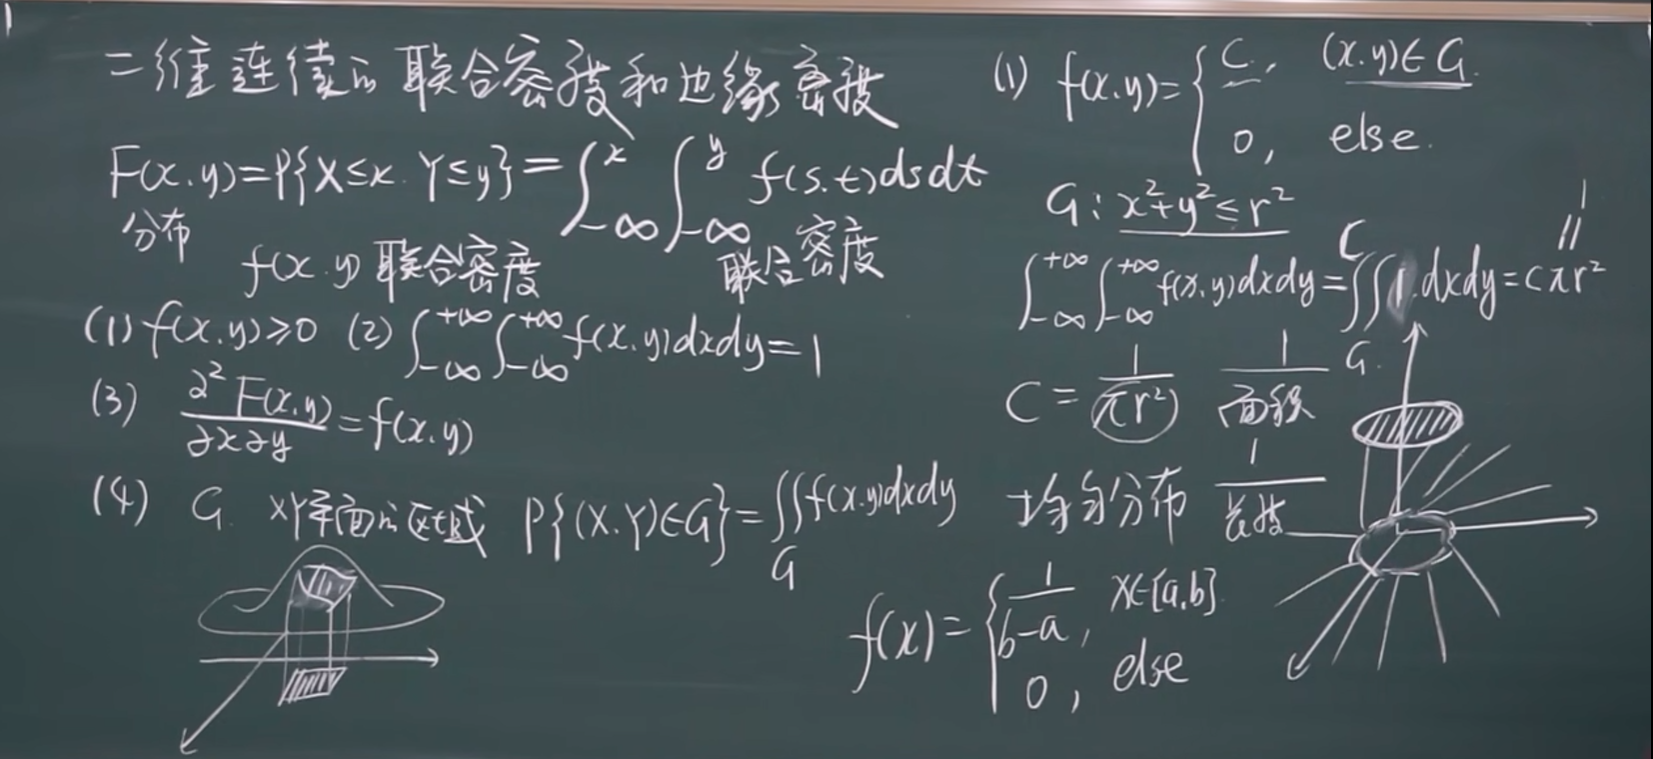 二维连续的联合密度和边缘密度
F(x.y)=P{X≤x. Y≤y}=∫_{-∞}^{x}∫_{-∞}^{y} f(s.t)dsdt
分布
联合密度
f(x.y) 联合密度
(1) f(x.y)≥0 (2) ∫_{-∞}^{+∞}∫_{-∞}^{+∞} f(x.y)dxdy=1
(3) ∂²F(x.y)/∂x∂y = f(x.y)
(4) G. XY平面的区域 P{(X.Y)∈G}=∬_G f(x.y)dxdy
(1) f(x.y)={ C, (x.y)∈G.
0, else.
G: x²+y²≤r²
1
∥
∫_{-∞}^{+∞}∫_{-∞}^{+∞} f(x,y)dxdy = C∬_G 1.dxdy = cπr²
C = 1/(πr²) 1/面积
均匀分布 1/长度
f(x)={ 1/(b-a), x∈[a,b].
0, else